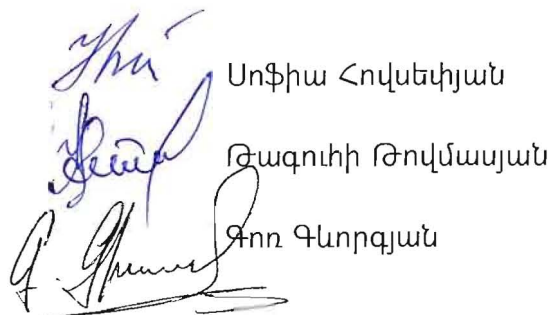 Սոֆիա Հովսեփյան
Թագուհի Թովմասյան
Գոռ Գևորգյան